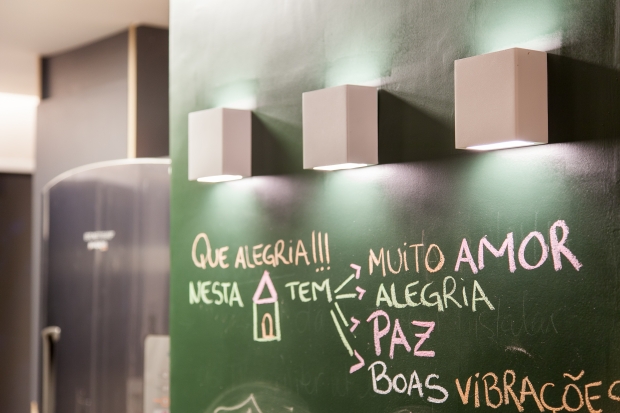 QUE ALEGRIA!!! MUITO AMOR
NESTA TEM ALEGRIA
PAZ
BOAS VIBRAÇÕES